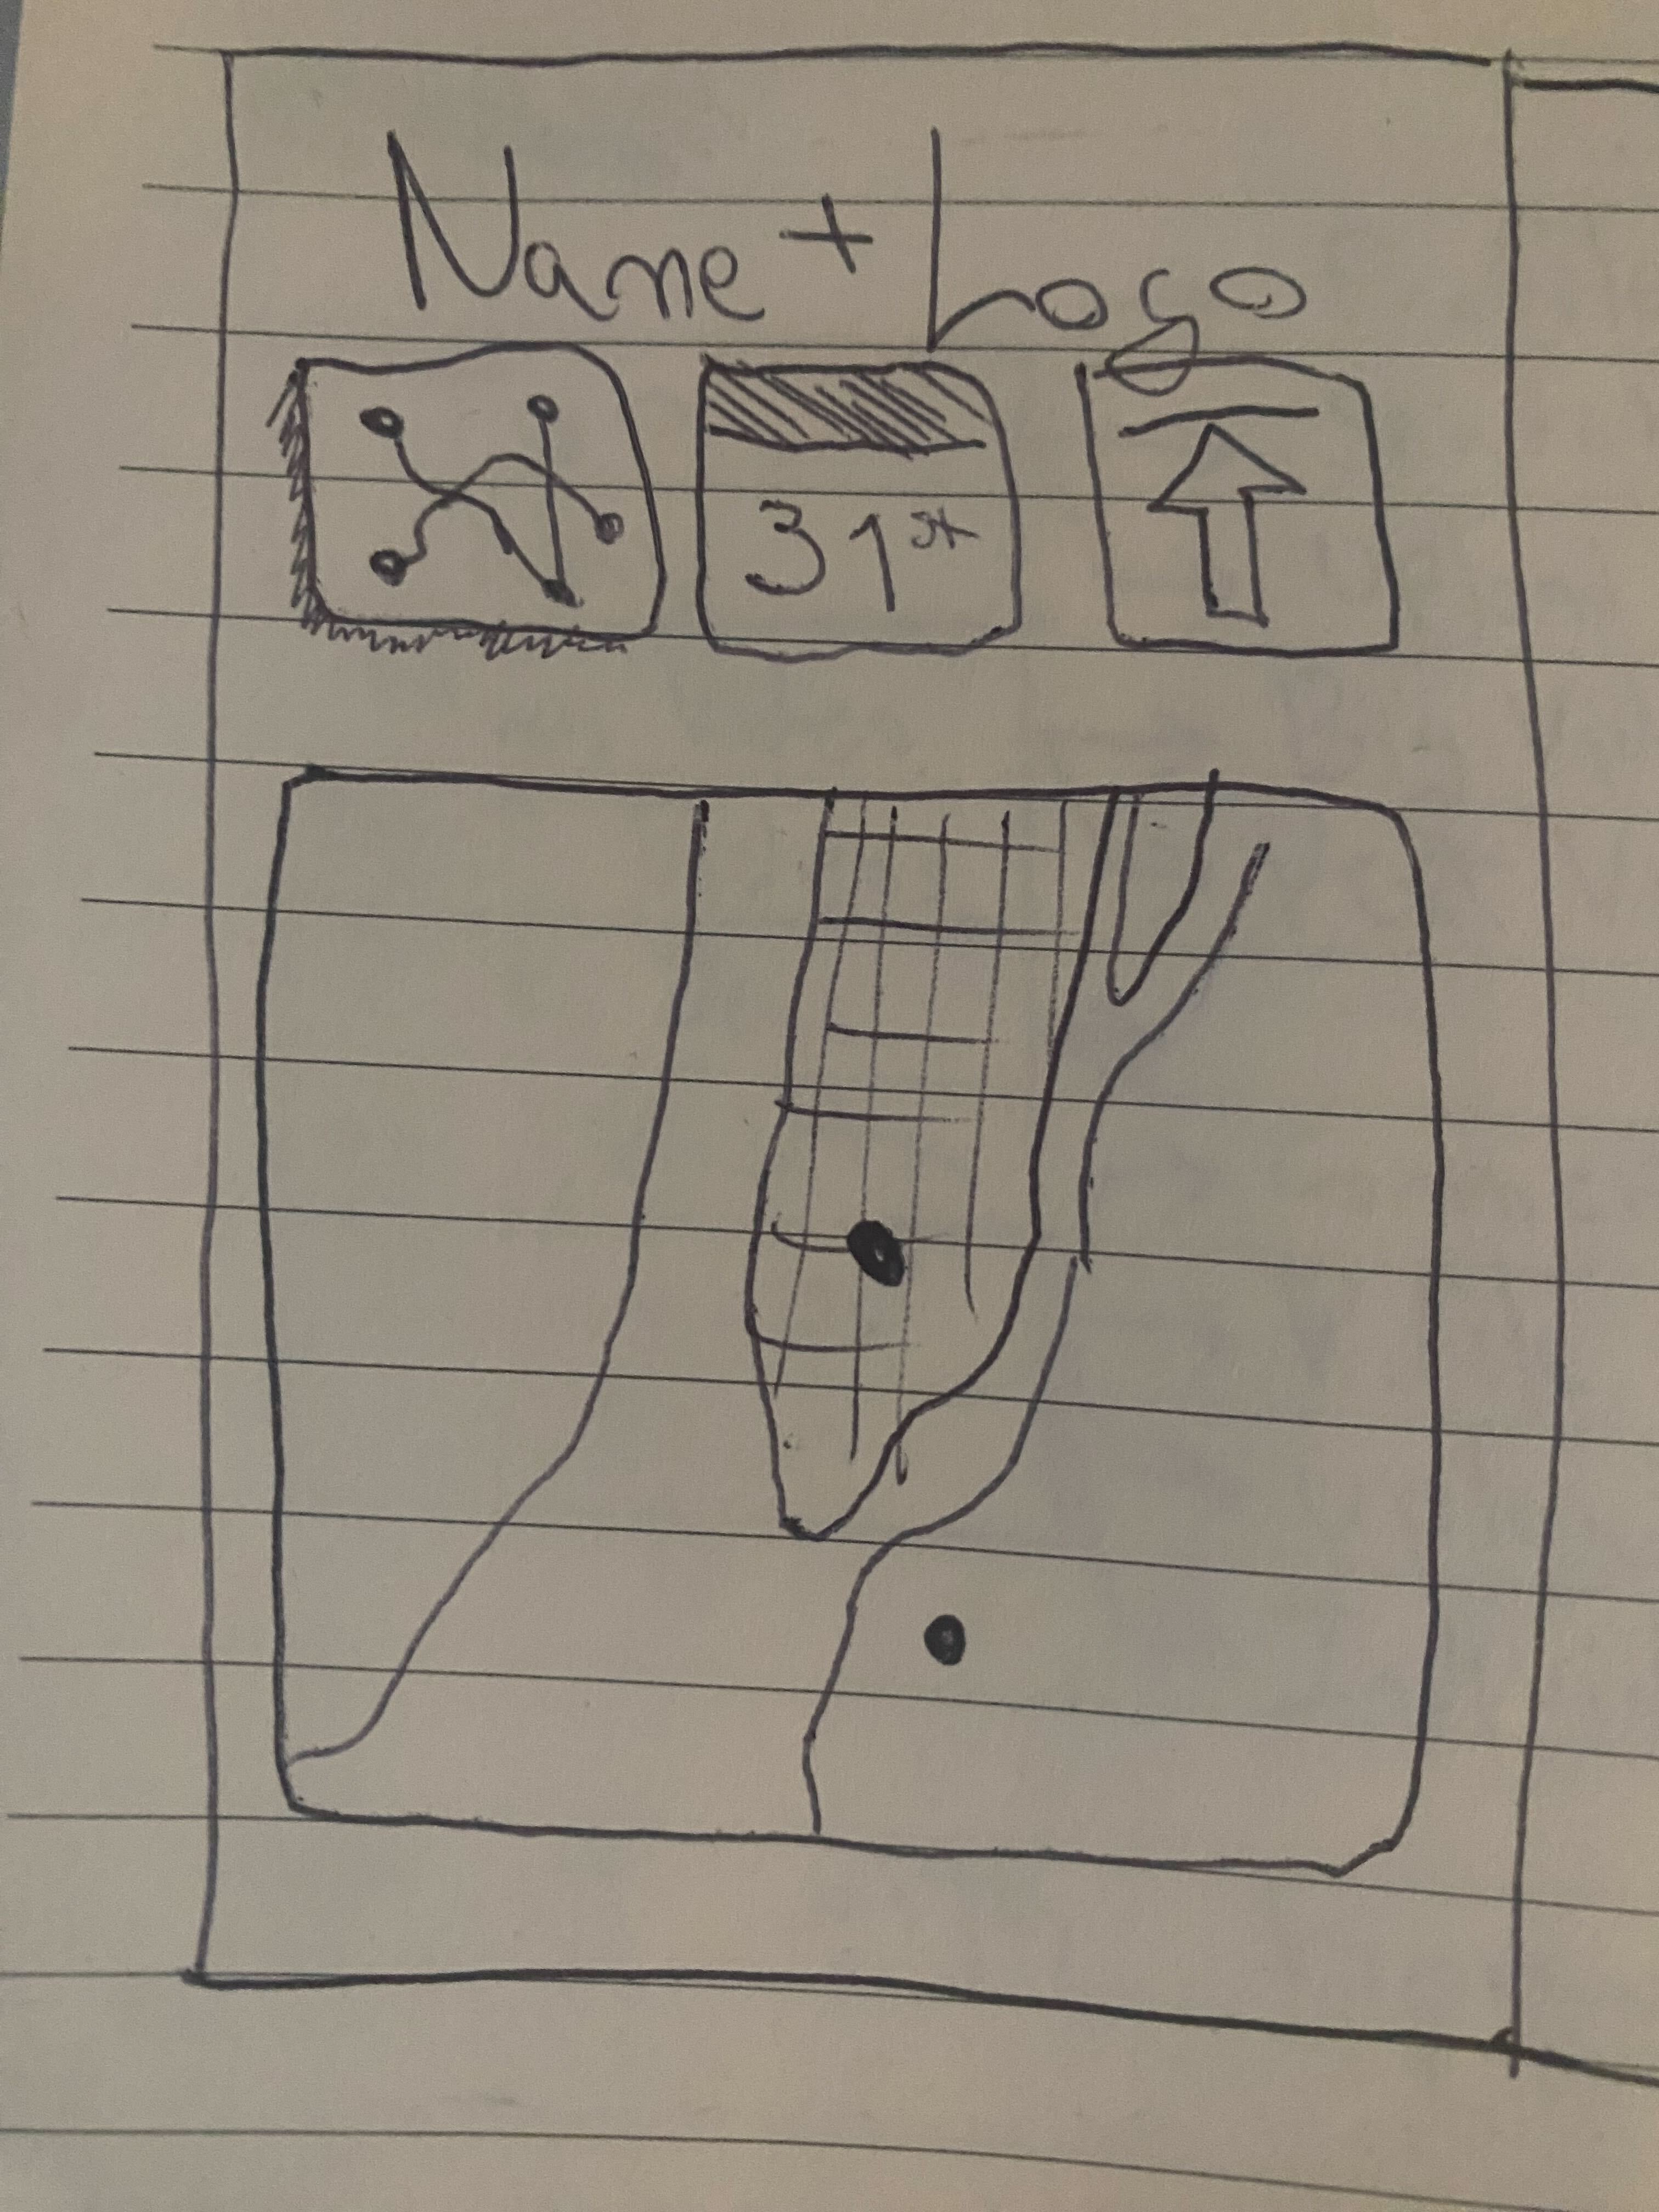 Name + Logo
31st